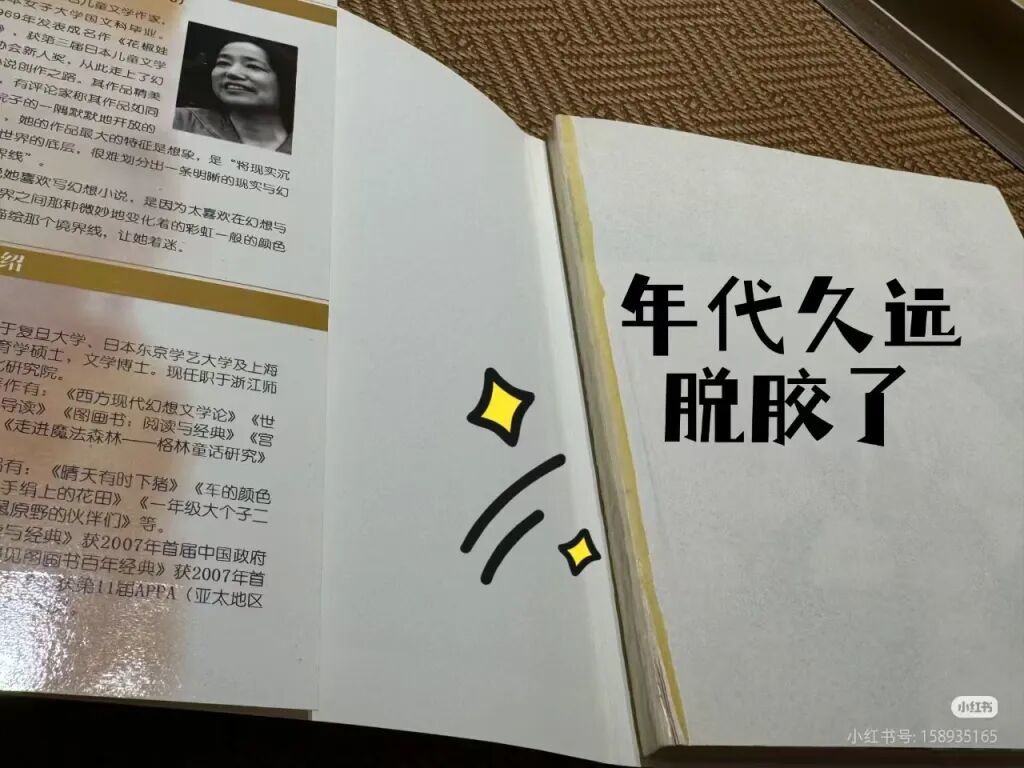 名儿童文学作家,
本女子大学国文科毕业。
969年发表成名作《花椒娃
》,获第三届日本儿童文学
协会新人奖,从此走上了幻
说创作之路。其作品精美
,有评论家称其作品如同
院子的一隅默默地开放的
。她的作品最大的特征是想象,是“将现实沉
世界的底层,很难划分出一条明晰的现实与幻
界线”。
说她喜欢写幻想小说,是因为太喜欢在幻想与
界之间那种微妙地变化着的彩虹一般的颜色
描绘那个境界线,让她着迷。
绍
于复旦大学、日本东京学艺大学及上海
育学硕士,文学博士。现任职于浙江师
化研究院。
作有:《西方现代幻想文学论》《世
导读》《图画书:阅读与经典》《宫
《走进魔法森林——格林童话研究》
有:《晴天有时下猪》《车的颜色
手绢上的花田》《一年级大个子二
原野的伙伴们》等。
与经典》获2007年首届中国政府
见图画书百年经典》获2007年首
获第11届APPA(亚太地区
年代久远
脱胶了
小红书
小红书号: 158935165